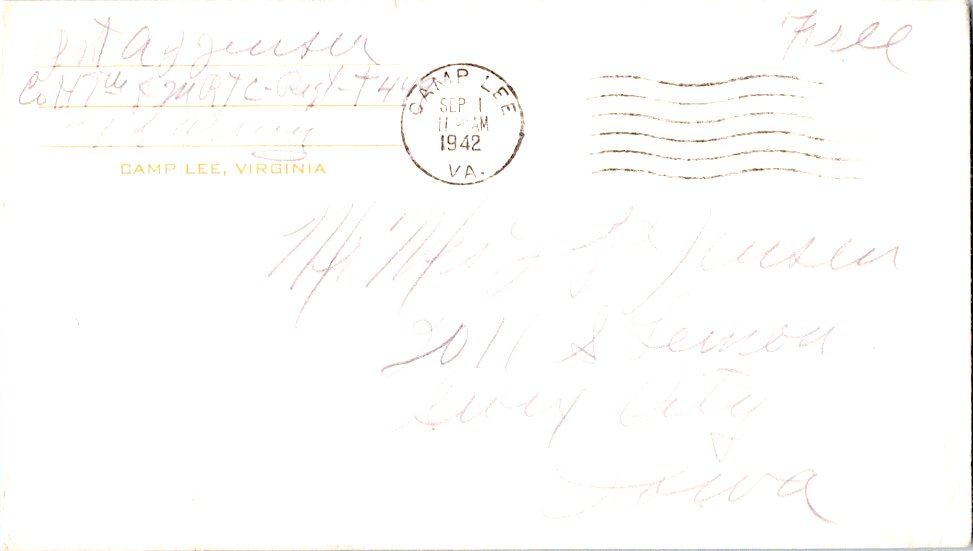 Pvt A J Jensen
Free
Co H 7th QMRTC-Regt-T
CAMP LEE
SEP 1
11 AM
1942
VA.
CAMP LEE, VIRGINIA
Mr. Mrs. Jensen
2011 S Lemon
City
Iowa